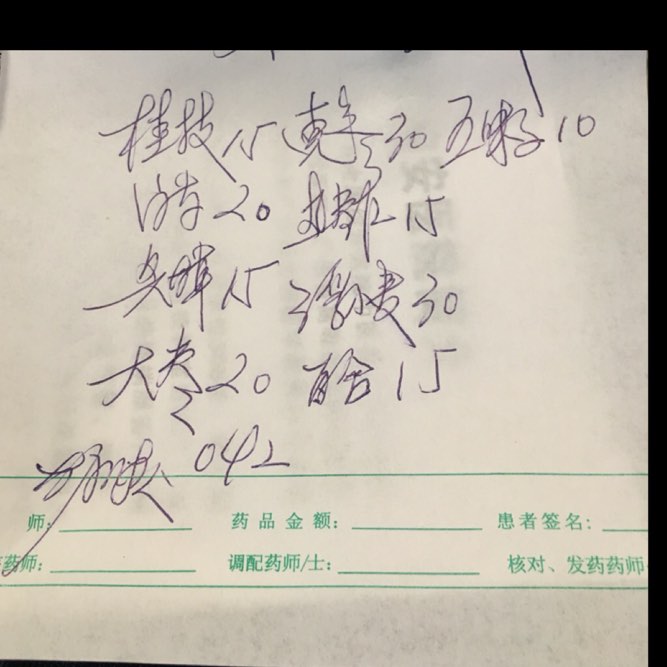 桂枝15 黄芪30 五味子10
白芍20 15
15 浮小麦30
大枣20 百合15
042
师: 药品金额: 患者签名:
药师: 调配药师/士: 核对、发药药师